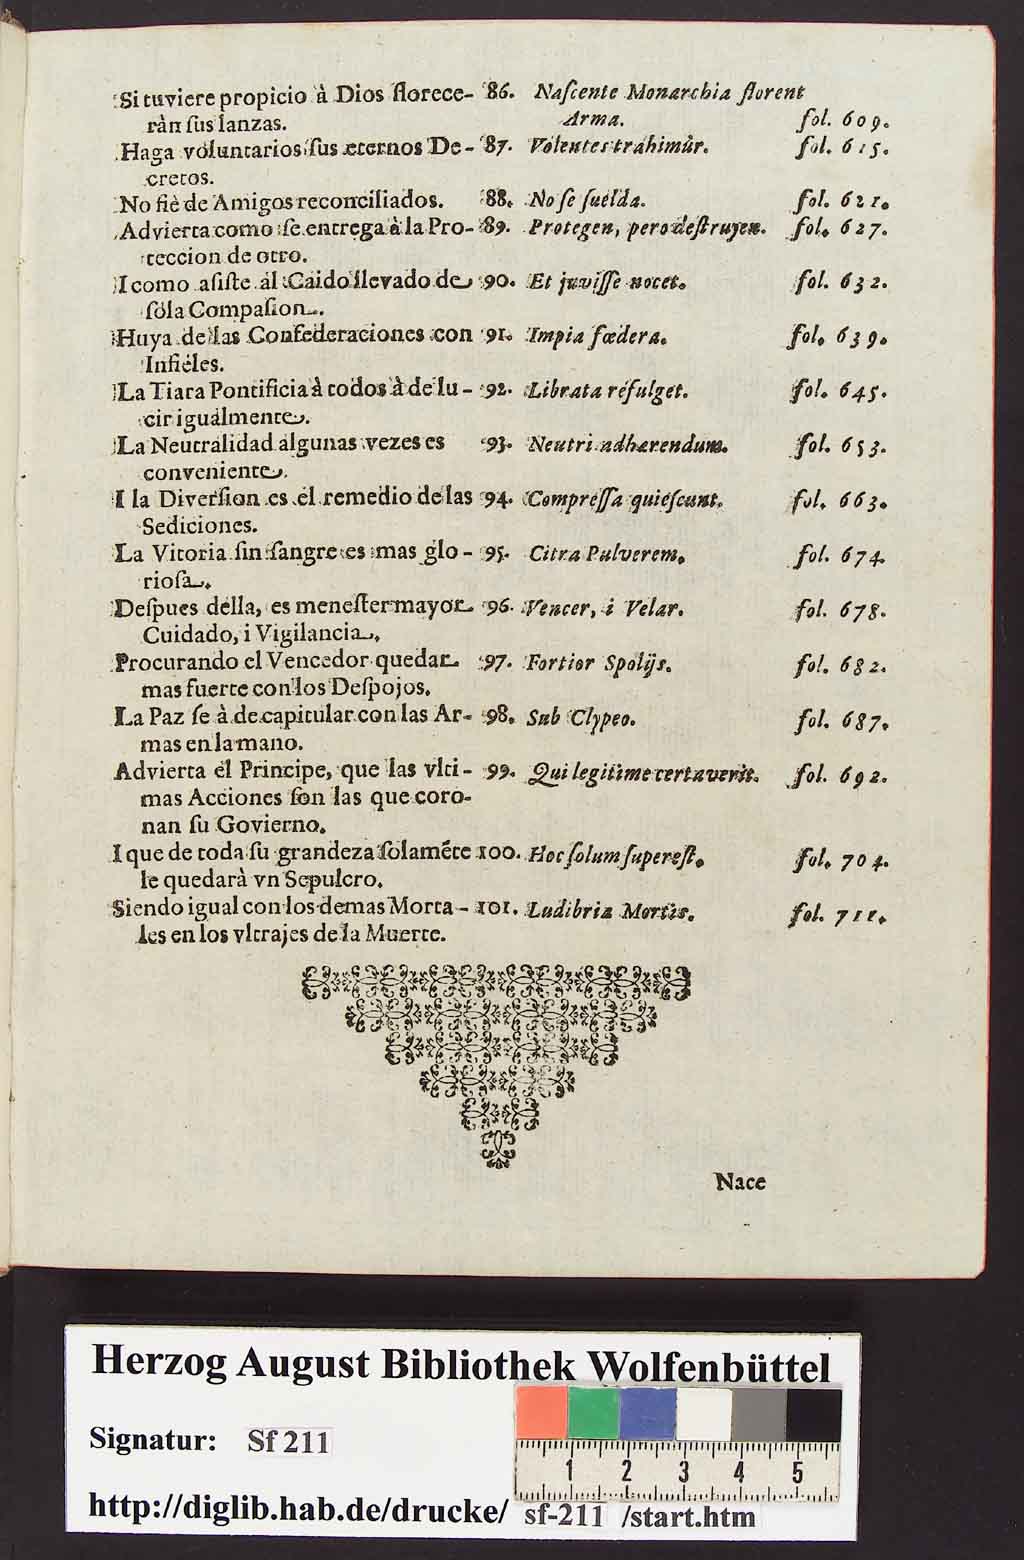 Si tuviere propicio à Dios florece- 86. Naſcente Monarchia florent
ràn ſus lanzas. Arma. fol. 609.
Haga voluntarios ſus eternos De- 87. Volentes trahimùr. fol. 615.
cretos.
No fiè de Amigos reconciliados. 88. No ſe ſuelda. fol. 621.
Advierta como ſe entrega à la Pro- 89. Protegen, pero deſtruyen. fol. 627.
teccion de otro.
I como aſiſte al Caido llevado de 90. Et juviſſe nocet. fol. 632.
ſola Compaſion.
Huya de las Confederaciones con 91. Impia fœdera. fol. 639.
Infieles.
La Tiara Pontificia à todos à de lu- 92. Librata refulget. fol. 645.
cir igualmente.
La Neutralidad algunas vezes es 93. Neutri adhærendum. fol. 653.
conveniente.
I la Diverſion es el remedio de las 94. Compreſſa quieſcunt. fol. 663.
Sediciones.
La Vitoria ſin ſangre es mas glo- 95. Citra Pulverem. fol. 674.
rioſa.
Deſpues della, es meneſter mayor 96. Vencer, i Velar. fol. 678.
Cuidado, i Vigilancia.
Procurando el Vencedor quedar 97. Fortior Spolijs. fol. 682.
mas fuerte con los Deſpojos.
La Paz ſe à de capitular con las Ar- 98. Sub Clypeo. fol. 687.
mas en la mano.
Advierta el Principe, que las vlti- 99. Qui legitime certaverit. fol. 692.
mas Acciones ſon las que coro-
nan ſu Govierno.
I que de toda ſu grandeza ſolamẽte 100. Hoc ſolum ſupereſt. fol. 704.
le quedarà vn Sepulcro.
Siendo igual con los demas Morta- 101. Ludibria Mortis. fol. 711.
les en los vltrajes de la Muerte.
Nace
Herzog August Bibliothek Wolfenbüttel
Signatur: Sf 211
1 2 3 4 5
http://diglib.hab.de/drucke/ sf-211 /start.htm